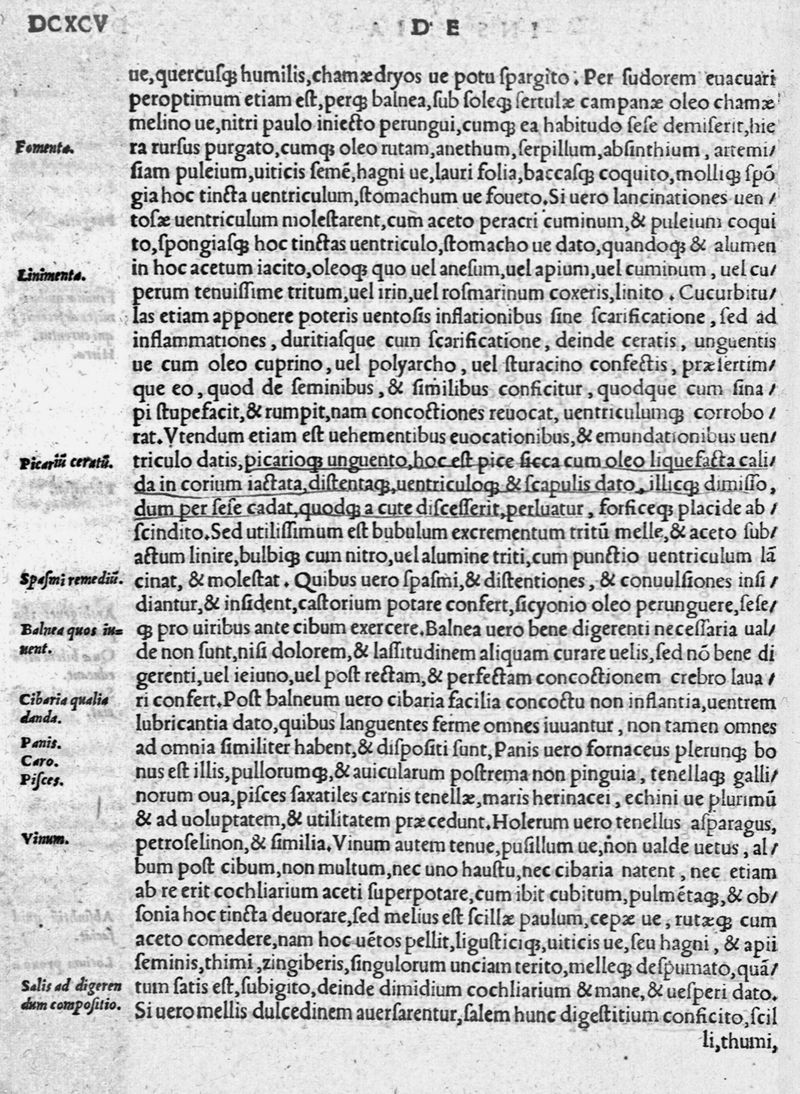 DCXCV
D E
ue,quercuſq; humilis,chamædryos ue potu ſpargito. Per ſudorem euacuari
peroptimum etiam eſt,perq; balnea,ſub ſoleq; ſertulæ campanæ oleo chamæ
melino ue,nitri paulo iniecto perungui,cumq; ea habitudo ſeſe demiſerit,hie
Fomenta.
ra rurſus purgato,cumq; oleo rutam,anethum,ſerpillum,abſinthium, artemi/
ſiam puleium,uiticis ſemē,hagni ue,lauri folia,baccaſq; coquito,molliq; ſpō
gia hoc tincta uentriculum,ſtomachum ue foueto.Si uero lancinationes uen/
toſæ uentriculum moleſtarent,cum aceto peracri cuminum,& puleium coqui
to,ſpongiaſq; hoc tinctas uentriculo,ſtomacho ue dato,quandoq; & alumen
Linimenta.
in hoc acetum iacito,oleoq; quo uel aneſum,uel apium,uel cuminum, uel cu/
perum tenuiſſime tritum,uel irin,uel roſmarinum coxeris,linito. Cucurbitu/
las etiam apponere poteris uentoſis inflationibus ſine ſcarificatione, ſed ad
inflammationes, duritiaſque cum ſcarificatione, deinde ceratis, unguentis
ue cum oleo cuprino, uel polyarcho, uel ſturacino confectis, præſertim/
que eo, quod de ſeminibus, & ſimilibus conficitur, quodque cum ſina/
pi ſtupefacit,& rumpit,nam concoctiones reuocat, uentriculumq; corrobo/
rat.Vtendum etiam eſt uehementibus euocationibus,& emundationibus uen/
Picariū ceratū.
triculo datis,picarioq; unguento,hoc eſt pice ſicca cum oleo liquefacta cali/
da in corium iactata,diſtentaq;,uentriculoq; & ſcapulis dato, illicq; dimiſſo,
dum per ſeſe cadat,quodq; a cute diſceſſerit,perluatur, forficeq; placide ab/
ſcindito.Sed utiliſſimum eſt bubulum excrementum tritū melle,& aceto ſub/
actum linire,bulbiq; cum nitro,uel alumine triti,cum punctio uentriculum lā
Spaſmi remediū.
cinat, & moleſtat. Quibus uero ſpaſmi,& diſtentiones, & conuulſiones inſi/
diantur,& inſident,caſtorium potare confert,ſicyonio oleo perunguere,ſeſe/
Balnea quos iu=
q; pro uiribus ante cibum exercere.Balnea uero bene digerenti neceſſaria ual/
uent.
de non ſunt,niſi dolorem,& laſſitudinem aliquam curare uelis,ſed nō bene di
gerenti,uel ieiuno,uel poſt rectam,& perfectam concoctionem crebro laua/
Cibaria qualia
ri confert.Poſt balneum uero cibaria facilia concoctu non inflantia,uentrem
danda.
lubricantia dato,quibus languentes ferme omnes iuuantur, non tamen omnes
Panis.
ad omnia ſimiliter habent,& diſpoſiti ſunt,Panis uero fornaceus plerunq; bo
Caro.
nus eſt illis,pullorumq;,& auicularum poſtrema non pinguia, tenellaq; galli/
Piſces.
norum oua,piſces ſaxatiles carnis tenellæ,maris herinacei, echini ue plurimū
& ad uoluptatem,& utilitatem præcedunt.Holerum uero tenellus aſparagus,
Vinum.
petroſelinon,& ſimilia.Vinum autem tenue,puſillum ue,non ualde uetus, al/
bum poſt cibum,non multum,nec uno hauſtu,nec cibaria natent, nec etiam
ab re erit cochliarium aceti ſuperpotare,cum ibit cubitum,pulmētaq;,& ob/
ſonia hoc tincta deuorare,ſed melius eſt ſcillæ paulum,cepæ ue, rutæq; cum
aceto comedere,nam hoc uētos pellit,liguſticiq;,uiticis ue,ſeu hagni, & apii
ſeminis,thimi,zingiberis,ſingulorum unciam terito,melleq; deſpumato,quā/
Salis ad digeren
tum ſatis eſt,ſubigito,deinde dimidium cochliarium & mane,& ueſperi dato.
dum compoſitio.
Si uero mellis dulcedinem auerſarentur,ſalem hunc digeſtitium conficito,ſcil
li,thumi,